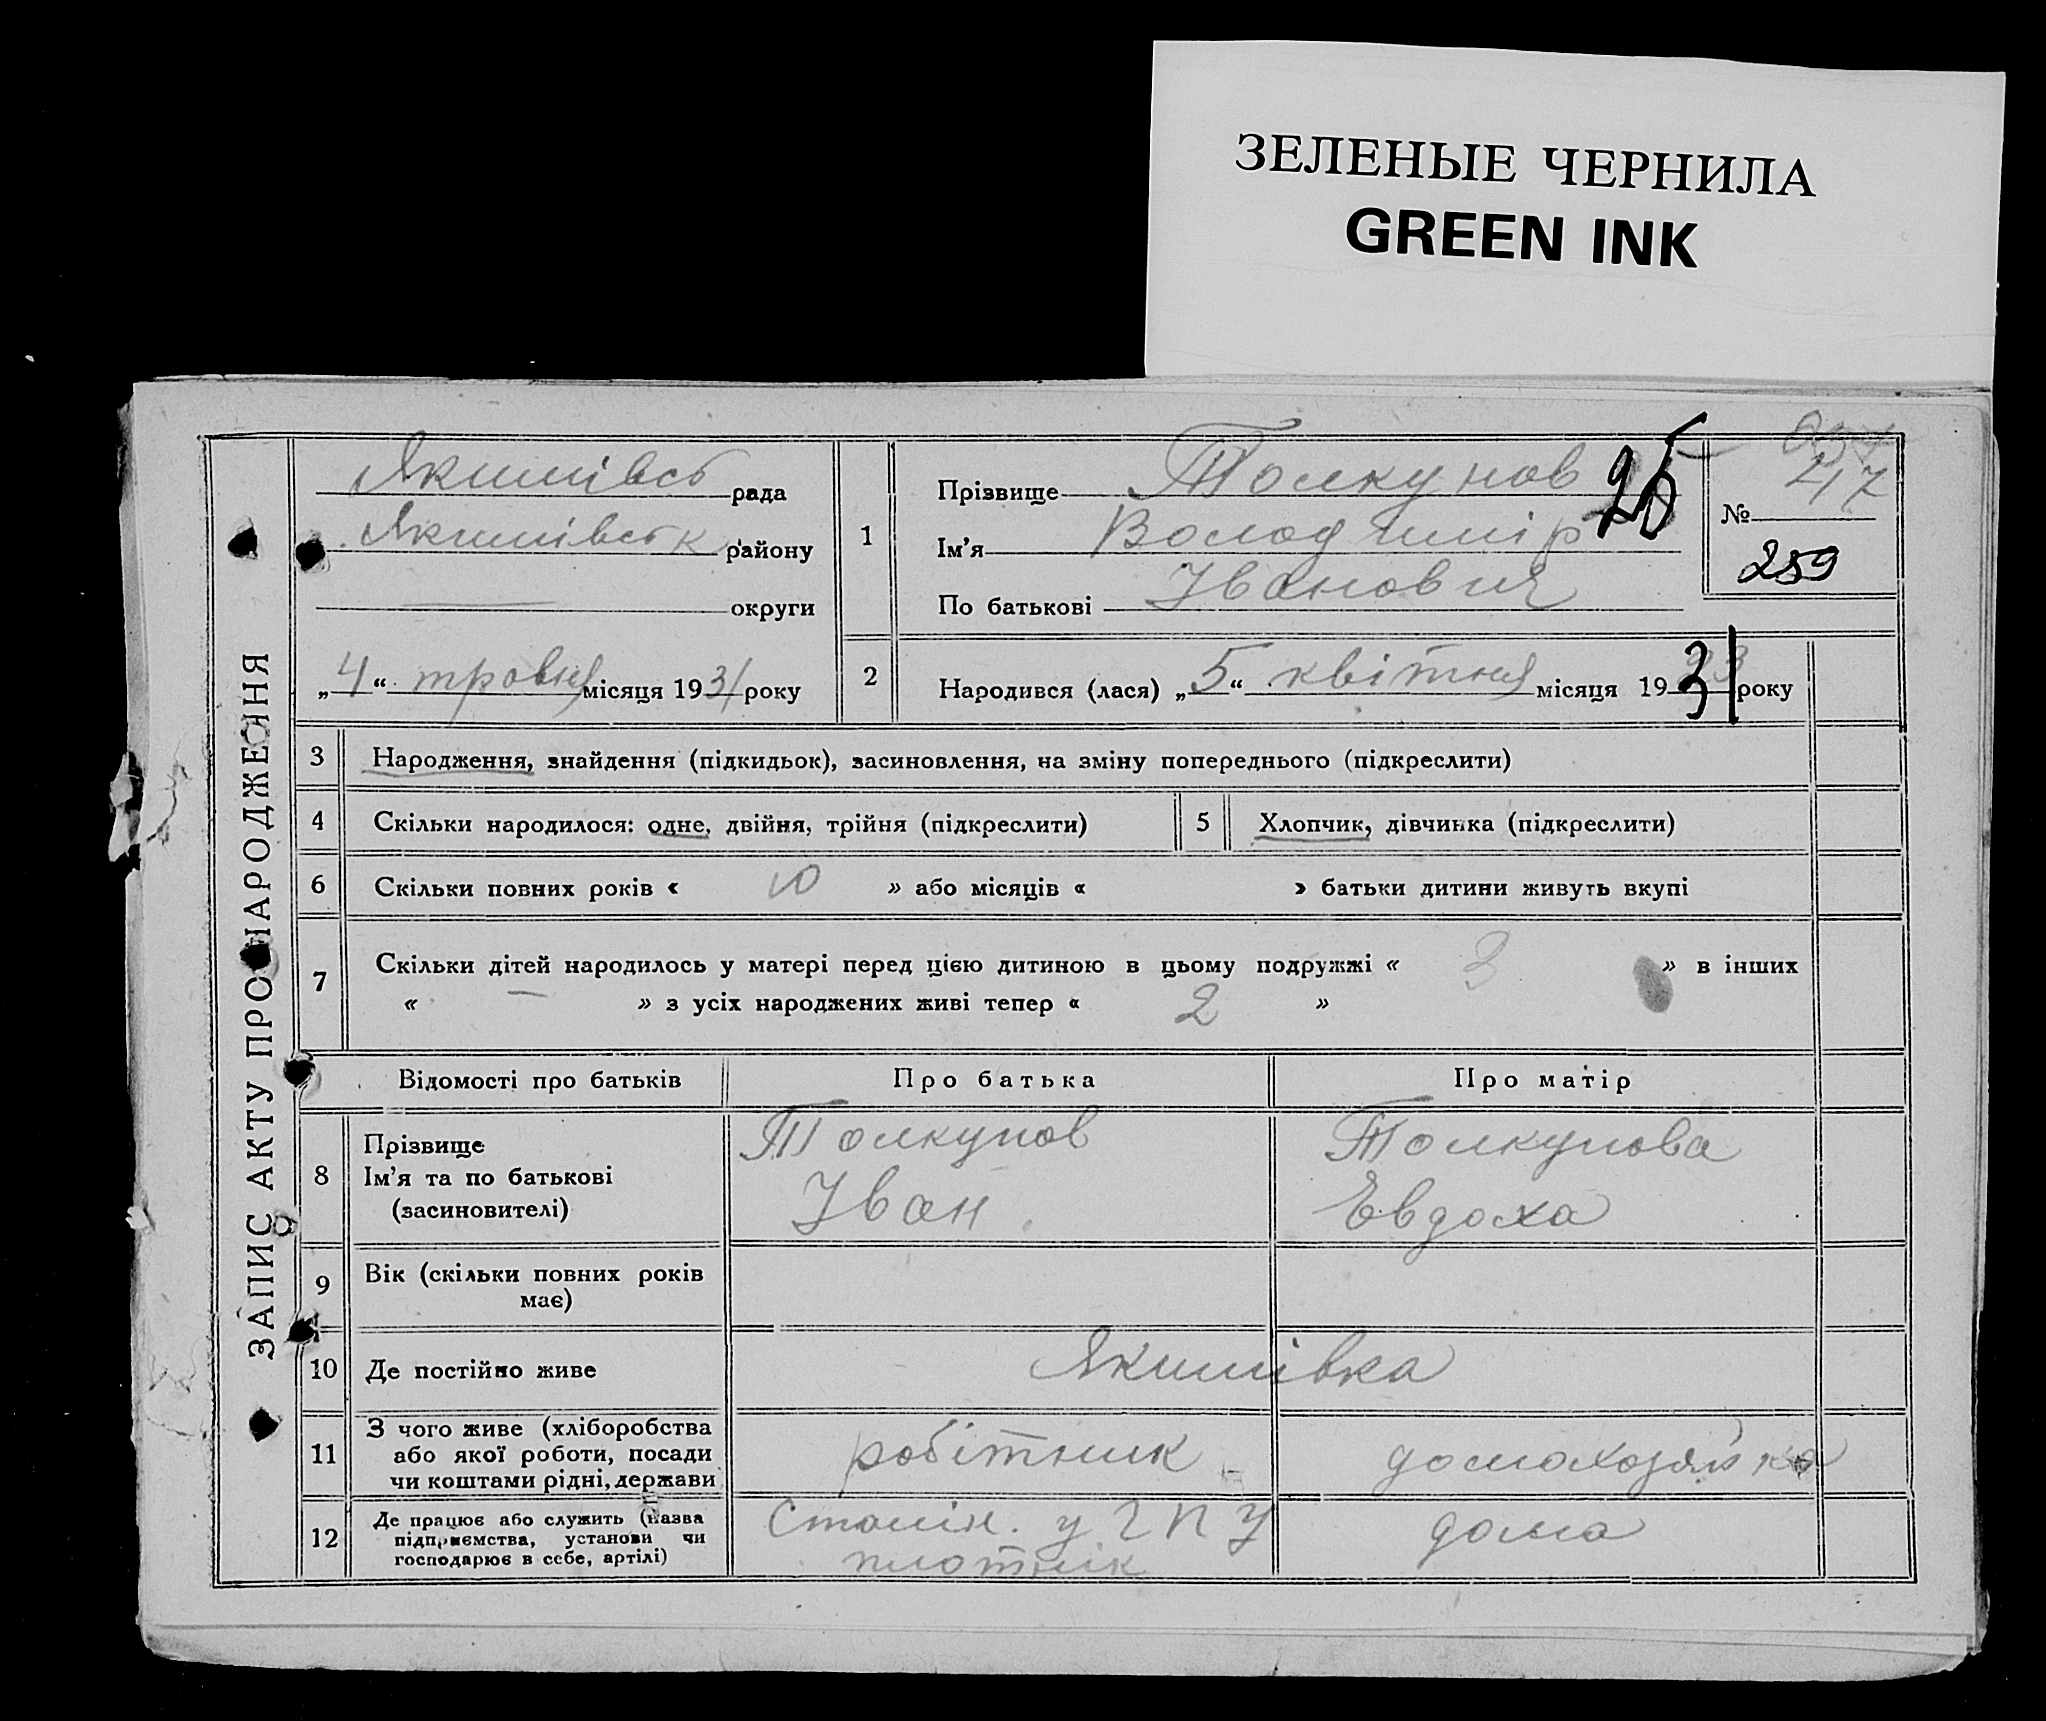 ЗЕЛЕНЫЕ ЧЕРНИЛА
GREEN INK
ЗАПИС АКТУ ПРО НАРОДЖЕННЯ
Якимівсь рада
Якимівськ району
округи
„4“ травня місяця 1931 року
1
Прізвище Толкунов
Ім'я Володимір
По батькові Іванович
25
№ 47
259
2
Народився (лася) „5“ квітня місяця 1931 року
3 Народження, знайдення (підкидьок), засиновлення, на зміну попереднього (підкреслити)
4 Скільки народилося: одне, двійня, трійня (підкреслити)
5 Хлопчик, дівчинка (підкреслити)
6 Скільки повних років « 10 » або місяців « » батьки дитини живуть вкупі
7 Скільки дітей народилось у матері перед цією дитиною в цьому подружжі « 3 » в інших
« — » з усіх народжених живі тепер « 2 »
Відомості про батьків Про батька Про матір
8
Прізвище
Ім'я та по батькові
(засиновителі)
Толкунов
Іван
Толкунова
Евдоха
9
Вік (скільки повних років
має)
10 Де постійно живе Якимівка
11
З чого живе (хліборобства
або якої роботи, посади
чи коштами рідні, держави
робітник
домохозяйка
12
Де працює або служить (назва
підприємства, установи чи
господарює в себе, артілі)
у ГПУ
плотнік
дома